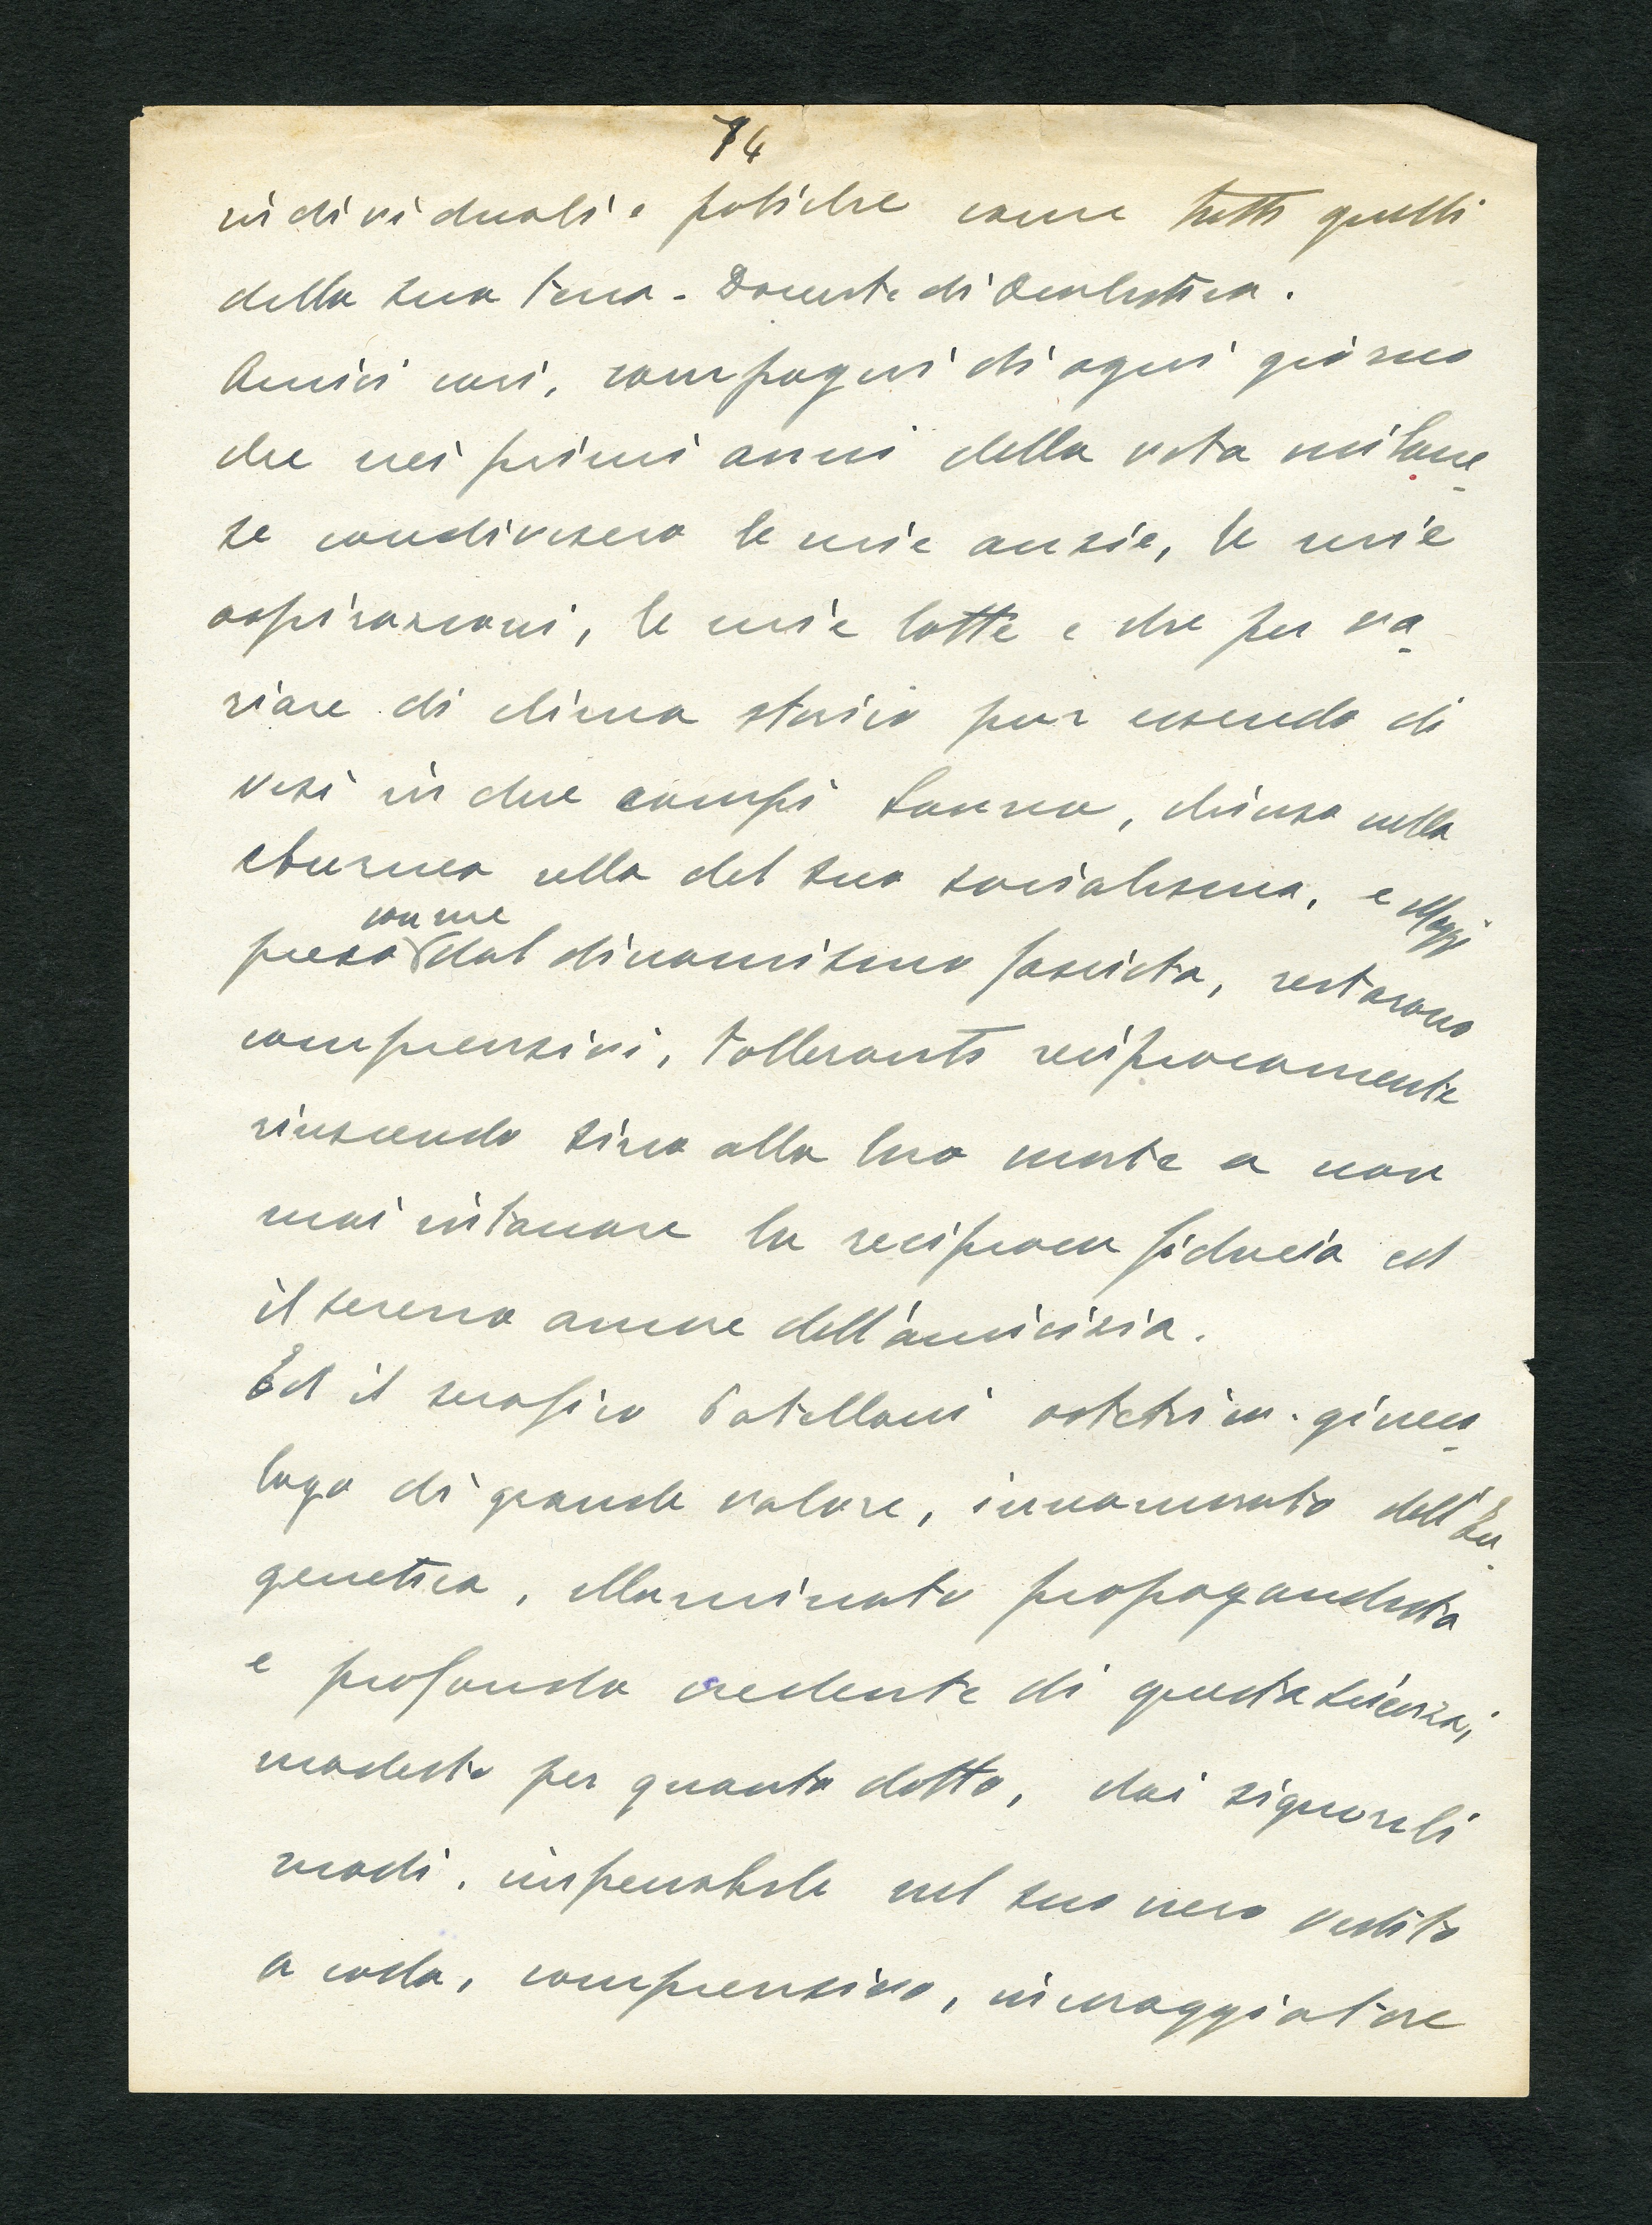 74
individuali e politiche come tutti quelli
della sua terra. Docente di Oculistica.
Amici cari, compagni di ogni giorno
che nei primi anni della vita milane-
se condivisero le mie ansie, le mie
aspirazioni, le mie lotte e che per va-
riare di clima storico pur essendo di
visi in due campi Sanna, chiuso nella
eburnea cella del suo socialismo, e Maggi
con me
preso dal dinamismo fascista, restarono
comprensivi, tolleranti reciprocamente
riuscendo sino alla loro morte a non
mai intaccare la reciproca fiducia ed
il sereno amore dell'amicizia.
Ed il serafico Patellani ostetrico-gineco-
logo di grande valore, innamorato dell'Eu-
genetica, illuminato propagandista
e profondo credente di questa scienza,
modesto per quanto dotto, dai signorili
modi, impeccabile nel suo nero vestito
a coda, comprensivo, incoraggiatore